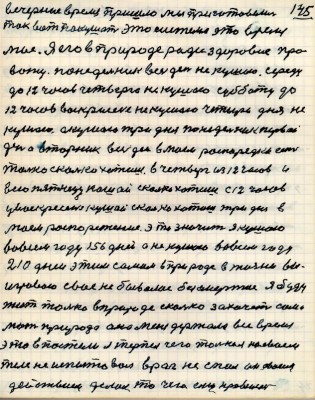 145
вечернее время пришло мы приготовили
так вот покушать это система это время
мое. Я его в природе ради здоровие про
вожу. понеделник весь ден не кушаю. среду
до 12 часов четверг не кушаю субботу до
12 часов воскресене не кушаю четыри дня не
кушаю. а кушаю три дня понеделник первой
а вторник весь ден в моем распоредке ешь
толко сколко хотиш. в четверг из 12 часов и
всю пятницу кошай сколко хотиш с 12 часов
у воскресене кушай сколко хотиш три дня в
моем распорежение. это значит я кушаю
вовсем году 156 дней а не кушаю вовсем году
210 дней этим самым в природе в жизни вы
игроваю свое не бывалое безсмертие Я буду
жит толко в природе сколко захочет сама
мать природа она меня держала все время
это в постели я терпел чего толко на своем
теле не испытовал враг не спал он своим
действием делал то чего ему нравится